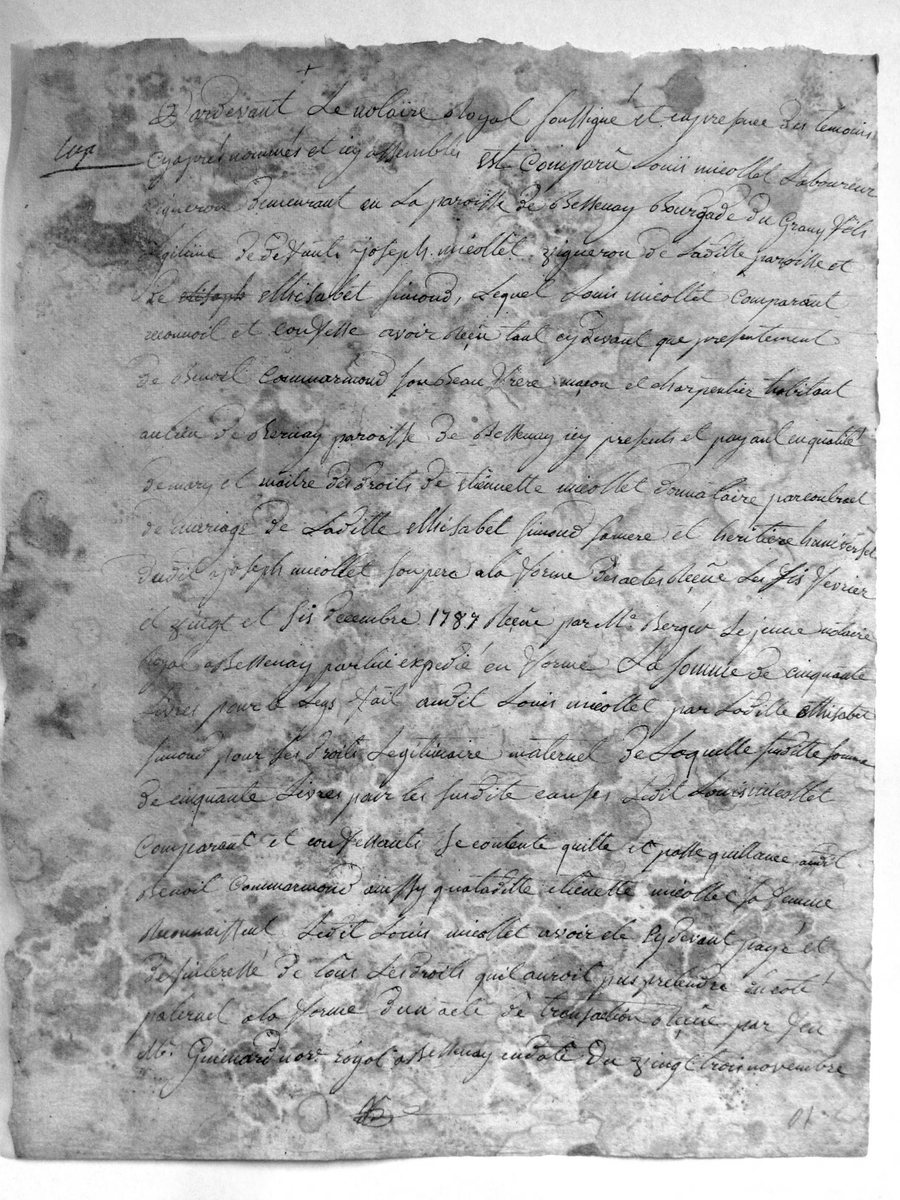 Pardevant Le notaire Royal soussigné et en presence des temoins
Cyaprès nommés et icy assemblés est Comparu Louis micollet Laboureur
vigneron Demeurant en La paroisse de Bessenay Bourgade du Grany fils
legitime de deffunt Joseph micollet vigneron de Laditte paroisse et
de Elisabet Simond, Lequel Louis micollet Comparant
reconnoit et Confesse avoir Reçû tant cydevant que presentement
de Benoit Commarmond son Beau frere maçon et charpentier habitant
au lieu de Bernay paroisse de Bessenay icy present et payant en qualité
de mary et maître des droits de etiennette micollet donnataire par contract
de mariage de Laditte Elisabet Simond sa mere et heritiere huniversel
dudit Joseph micollet son pere a la forme des actes Reçûs Les six fevrier
et vingt et six Decembre 1787 Reçûs par Me Berger Le jeune notaire
Royal a Bessenay par lui expedié en forme La somme de cinquante
Livres pour le Legs fait audit Louis micollet par Laditte Elisabet
Simond pour ses droits Legitimaire maternel de Laquelle susditte somme
de cinquante Livres pour les susdite causes Ledit Louis micollet
Comparant et confessant se contente quitte et passe quittance audit
Benoit Commarmond aussy qua laditte etiennette micollet sa femme
Reconnaissant Ledit Louis micollet avoir eté Cydevant payé et
desinteressé de tous Les droits quil auroit pus pretendre du coté
paternel a la forme dun acte de transaction Reçûe par feu
Me Guinard nore royal a Bessenay en date du vingt trois novembre